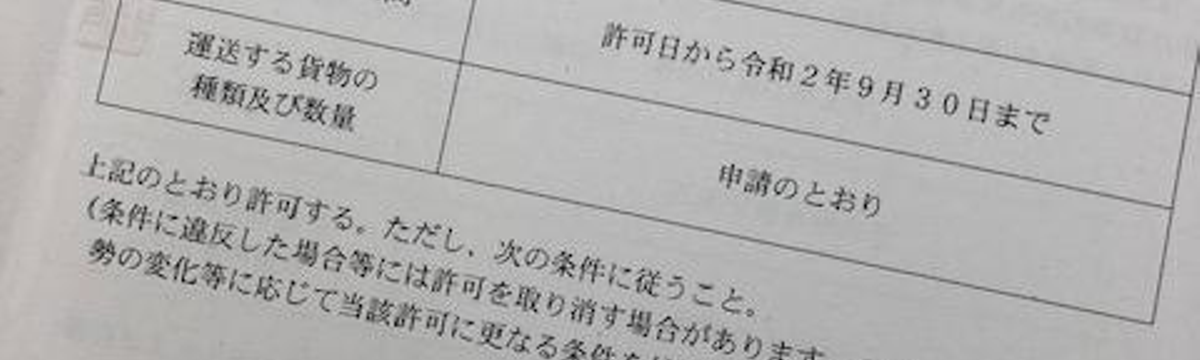 許可日から令和2年9月30日まで
運送する貨物の
種類及び数量
申請のとおり
上記のとおり許可する。ただし、次の条件に従うこと。
(条件に違反した場合等には許可を取り消す場合があります
勢の変化等に応じて当該許可に更なる条件を